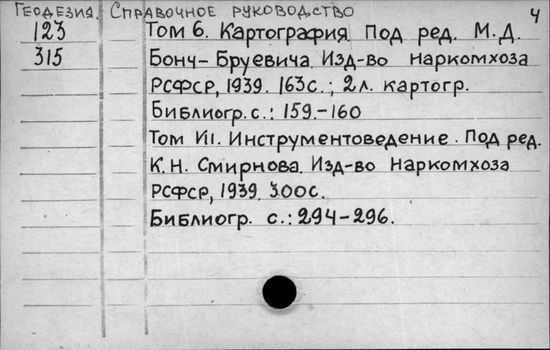 Геодезия. Справочное руководство 4
123 Том 6. Картография. Под ред. М.Д.
315 Бонч-Бруевича. Изд-во Наркомхоза
РСФСР, 1939. 163с.; 2л. картогр.
Библиогр. с.: 159.-160
Том VII. Инструментоведение. Под ред.
К.Н. Смирнова. Изд-во Наркомхоза
РСФСР, 1939. 300с.
Библиогр. с.: 294-296.